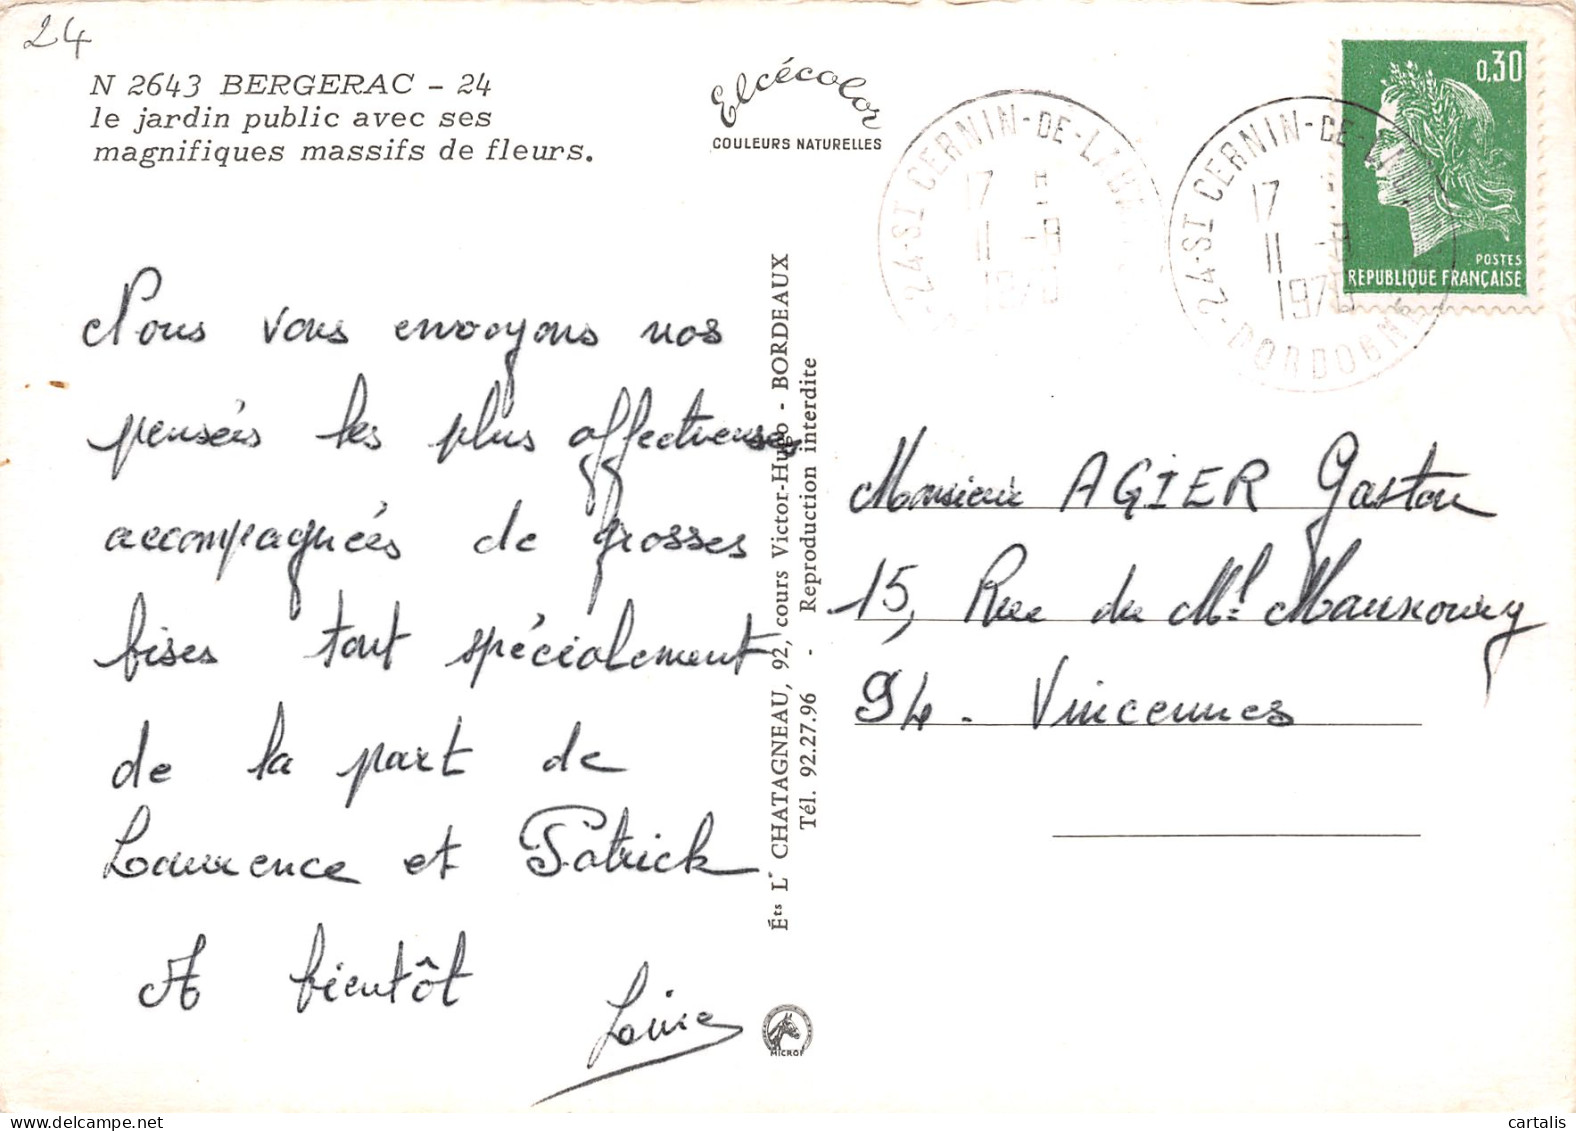 24
N 2643 BERGERAC - 24
le jardin public avec ses
magnifiques massifs de fleurs.
Elcécolor
COULEURS NATURELLES
24-ST CERNIN-DE-LABA
17 H
11 -8
1970
24-ST CERNIN-DE-LA
17
11 -8
1970
DORDOGNE
0,30
POSTES
REPUBLIQUE FRANÇAISE
Nous vous envoyons nos
pensées les plus affectueuses
accompagnées de grosses
bises tout spécialement
de la part de
Laurence et Patrick
A bientôt
Éts L. CHATAGNEAU, 92, cours Victor-Hugo - BORDEAUX
Tél. 92.27.96 - Reproduction interdite
MICROF
Monsieur AGIER Gaston
15, Rue du Ml Maunoury
94. Vincennes
cartalis